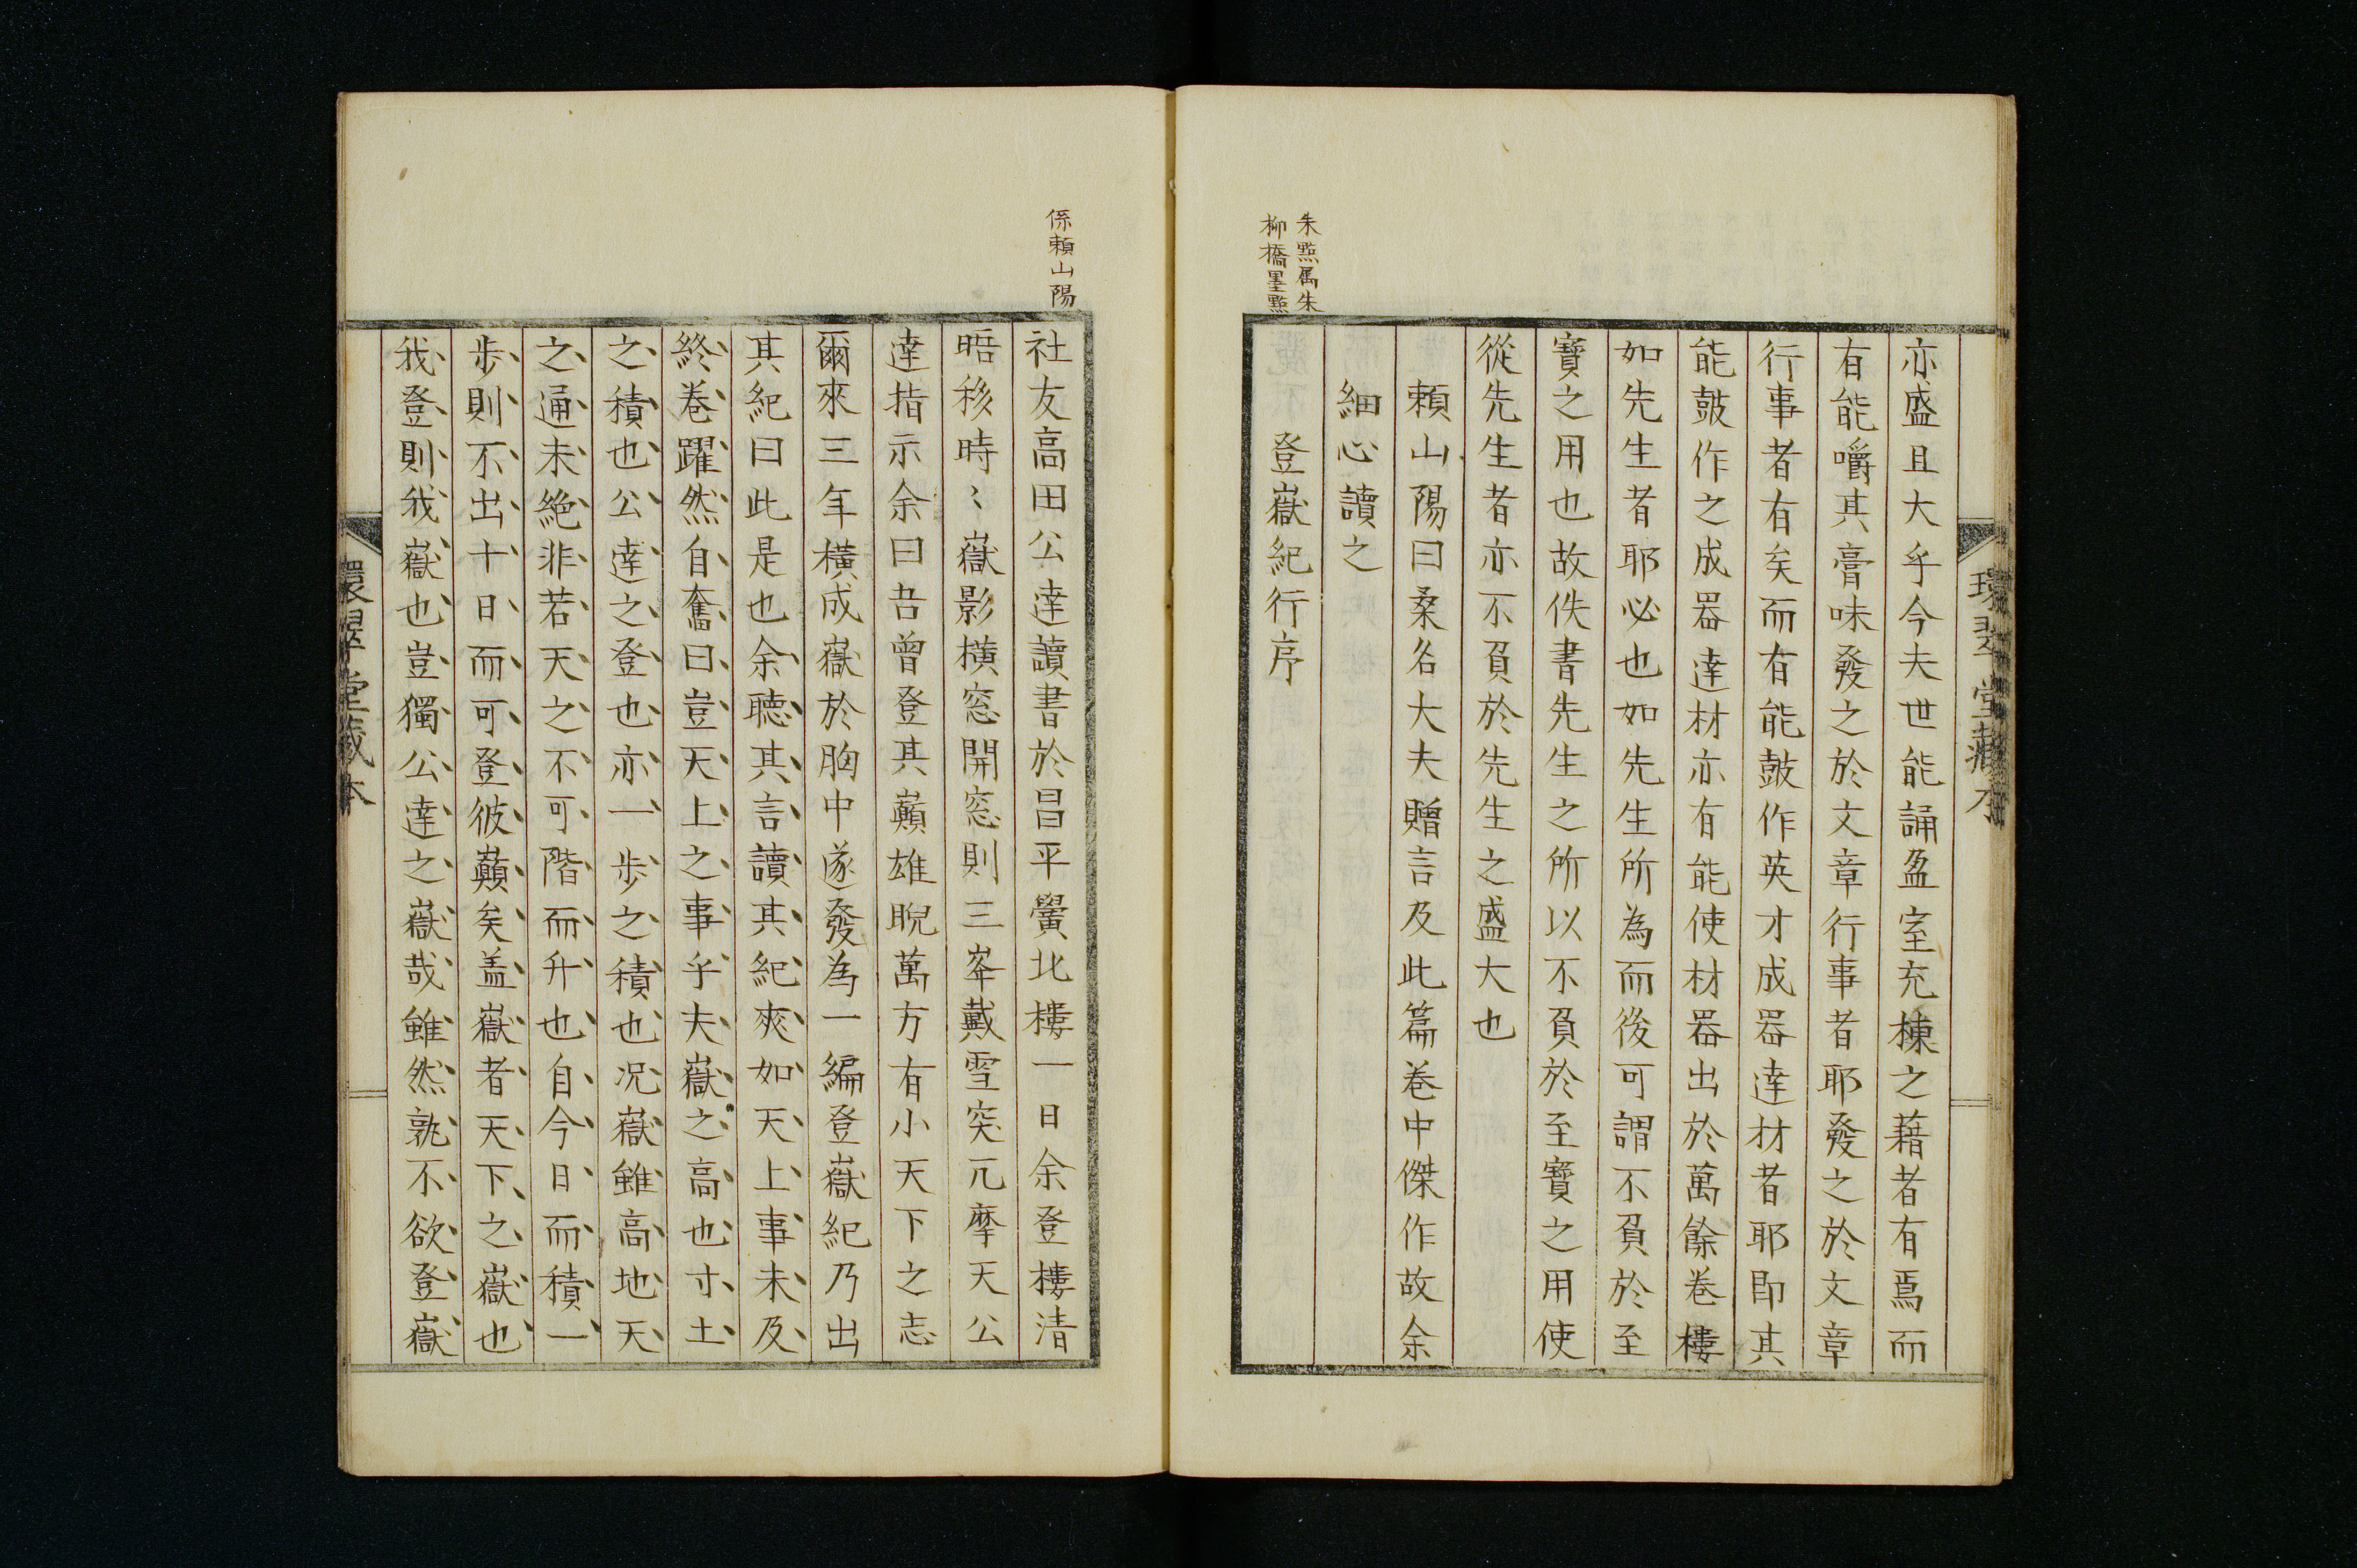 環翠堂藏本
亦盛且大乎今夫世能誦盈室充棟之藉者有焉而
有能嚼其膏味發之於文章行事者耶發之於文章
行事者有矣而有能鼓作英才成器達材者耶即其
能鼓作之成器達材亦有能使材器出於萬餘卷樓
如先生者耶必也如先生所為而後可謂不負於至
寶之用也故佚書先生之所以不負於至寶之用使
從先生者亦不負於先生之盛大也
頼山陽曰桑名大夫贈言及此篇卷中傑作故余
細心讀之
登嶽紀行序
朱㸃属朱
柳橋墨㸃
係頼山陽
社友高田公達讀書於昌平黌北樓一日余登樓清
晤移時〻嶽影橫窓開窓則三峯戴雪突兀摩天公
達指示余曰吾曾登其巔雄睨萬方有小天下之志
爾來三年橫成嶽於胸中遂發為一編登嶽紀乃出
其紀曰此是也余聽其言讀其紀爽如天上事未及
終卷躍然自奮曰豈天上之事乎夫嶽之高也寸土
之積也公達之登也亦一步之積也况嶽雖高地天
之通未絶非若天之不可階而升也自今日而積一
步則不出十日而可登彼巔矣盖嶽者天下之嶽也
我登則我嶽也豈獨公達之嶽哉雖然孰不欲登嶽
環翠堂藏本